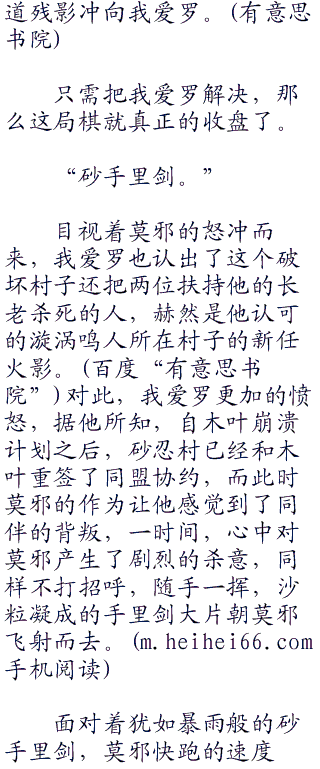 道残影冲向我爱罗。(有意思
书院)
　　只需把我爱罗解决，那
么这局棋就真正的收盘了。
　　“砂手里剑。”
　　目视着莫邪的怒冲而
来，我爱罗也认出了这个破
坏村子还把两位扶持他的长
老杀死的人，赫然是他认可
的漩涡鸣人所在村子的新任
火影。(百度“有意思书
院”)对此，我爱罗更加的愤
怒，据他所知，自木叶崩溃
计划之后，砂忍村已经和木
叶重签了同盟协约，而此时
莫邪的作为让他感觉到了同
伴的背叛，一时间，心中对
莫邪产生了剧烈的杀意，同
样不打招呼，随手一挥，沙
粒凝成的手里剑大片朝莫邪
飞射而去。(m.heihei66.com
手机阅读)
　　面对着犹如暴雨般的砂
手里剑，莫邪快跑的速度